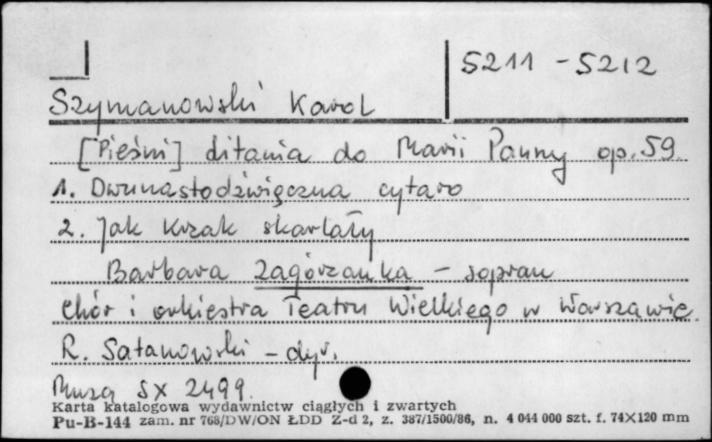 S211 - S212
Szymanowski Karol
[Pieśni] Litania do Marii Panny op. 59.
1. Dwunastodźwięczna cytaro
2. Jak krzak skarlały
Barbara Zagórzanka - sopran
Chór i orkiestra Teatru Wielkiego w Warszawie.
R. Satanowski - dyr.
Muza SX 2499.
Karta katalogowa wydawnictw ciągłych i zwartych
Pu-B-144 zam. nr 768/DW/ON ŁDD Z-d 2, z. 387/1500/86, n. 4 044 000 szt. f. 74X120 mm